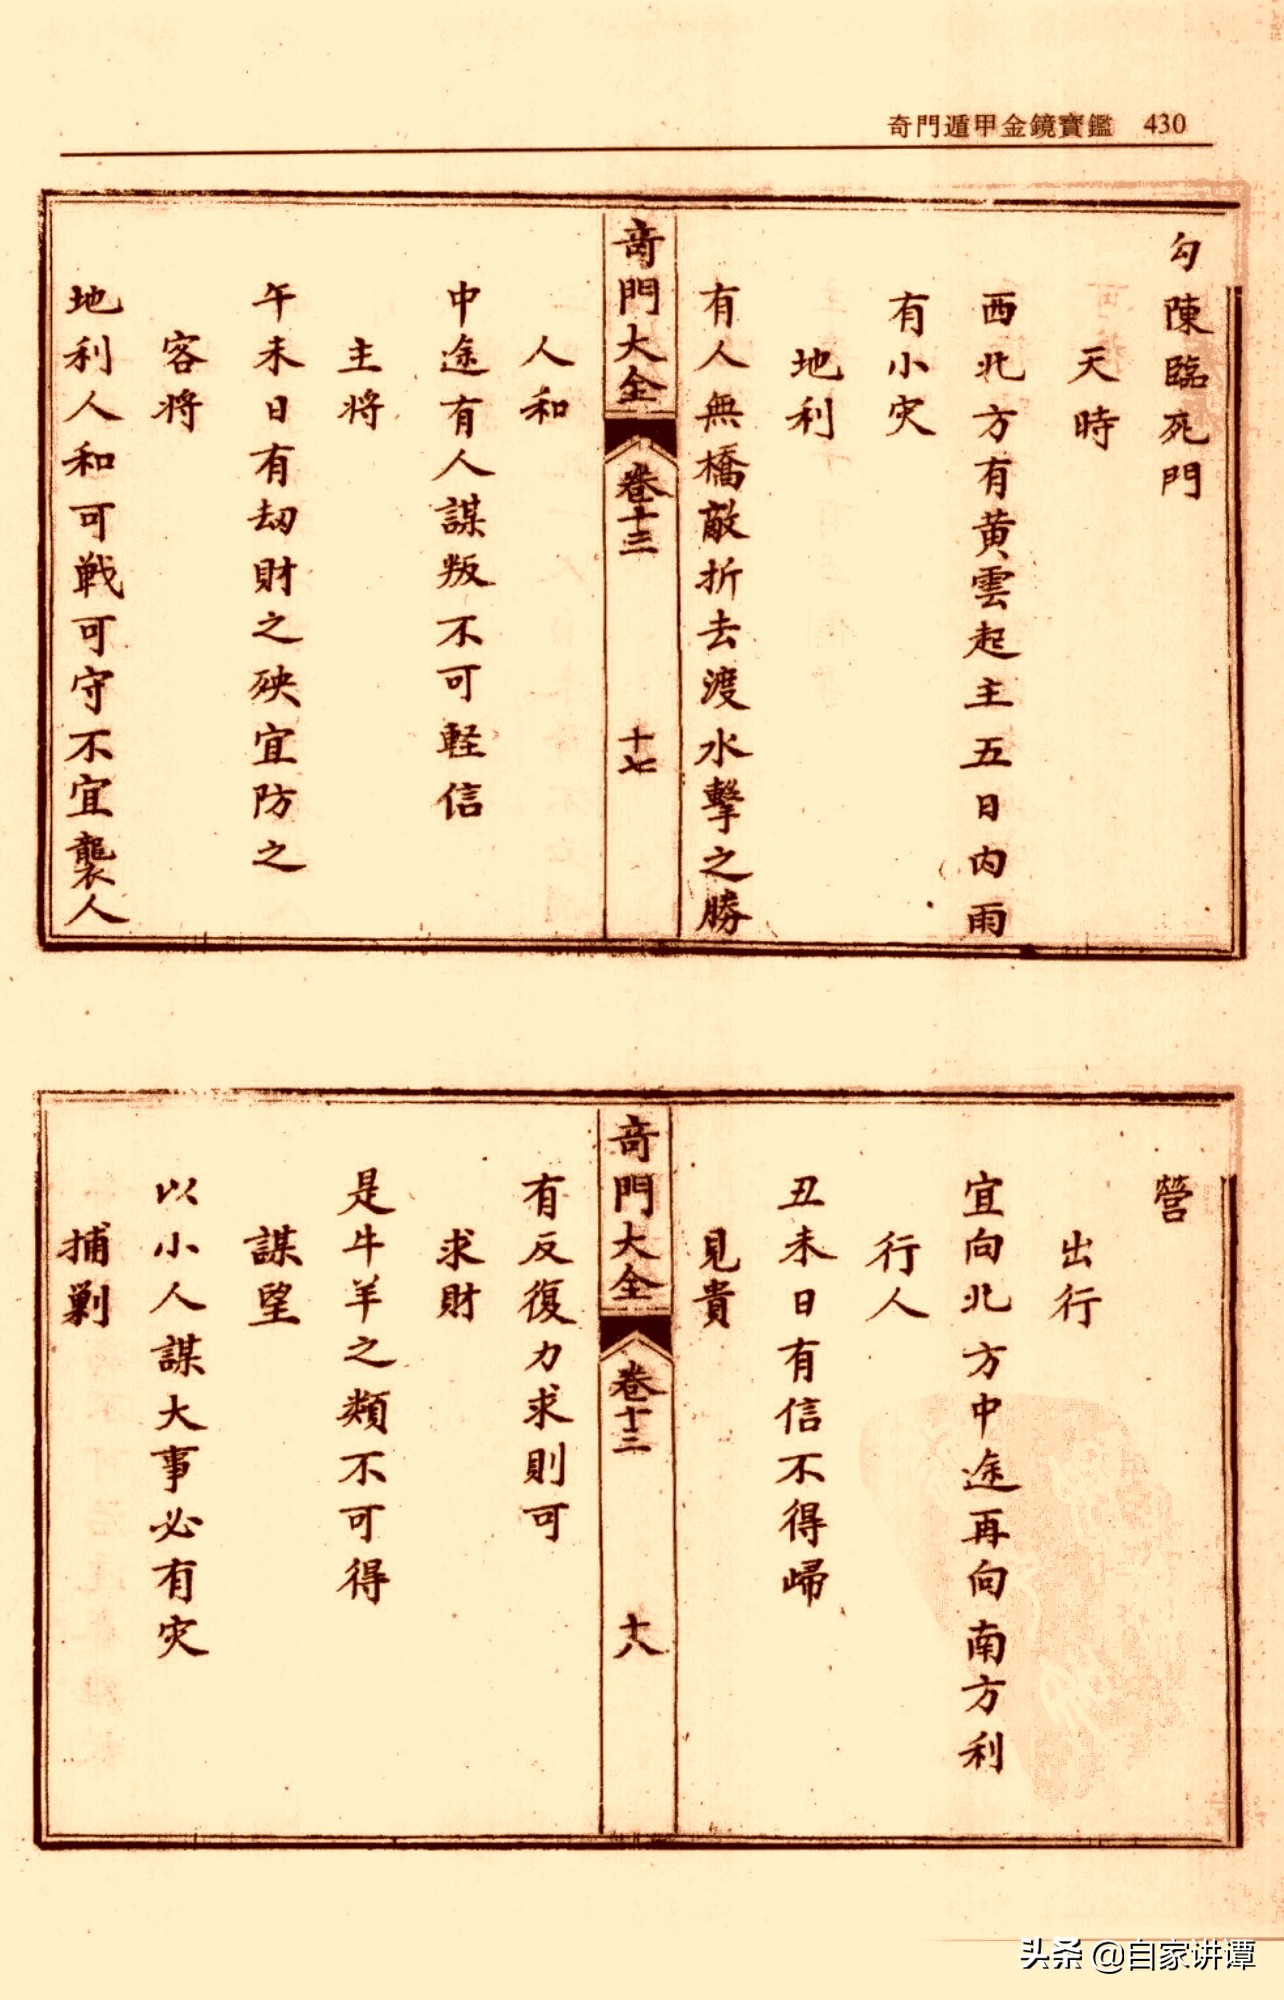 奇門遁甲金鏡寶鑑 430
勾陳臨死門
天時
西北方有黄雲起主五日内雨
有小灾
地利
有人無橋敵折去渡水擊之勝
奇門大全 卷十三 十七
人和
中途有人謀叛不可軽信
主将
午未日有刼財之殃宜防之
客将
地利人和可戦可守不宜襲人
營
出行
宜向北方中途再向南方利
行人
丑未日有信不得歸
見貴
奇門大全 卷十三 十八
有反復力求則可
求財
是牛羊之類不可得
謀望
以小人謀大事必有灾
捕剿
头条 @自家讲谭